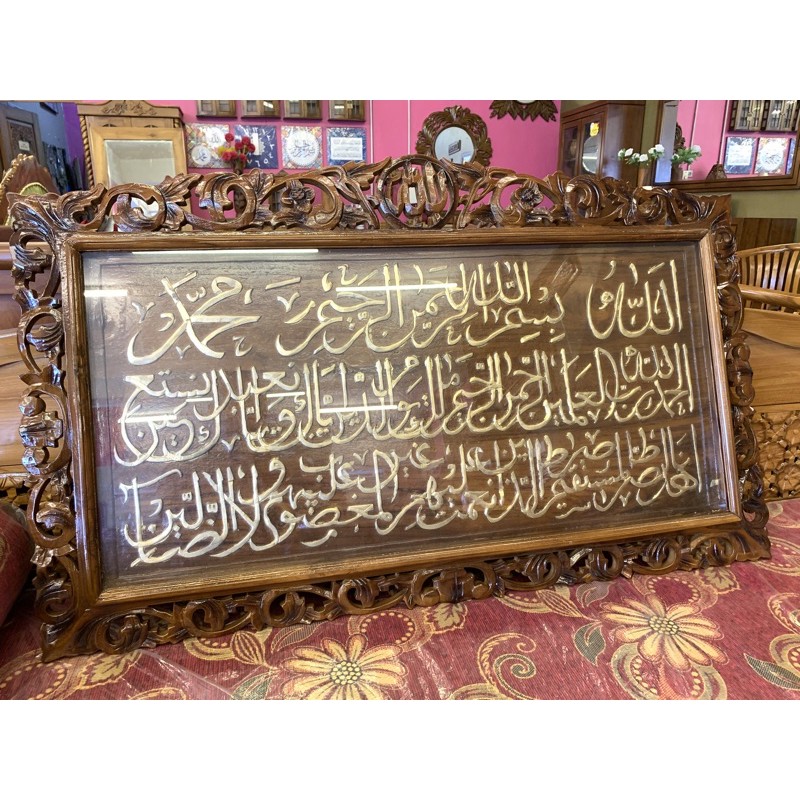 الله
الله بسم الله الرحمن الرحيم محمد
الحمد لله رب العلمين الرحمن الرحيم ملك يوم الدين اياك نعبد واياك نستعين
اهدنا الصرط المستقيم صرط الذين انعمت عليهم غير المغضوب عليهم ولا الضالين